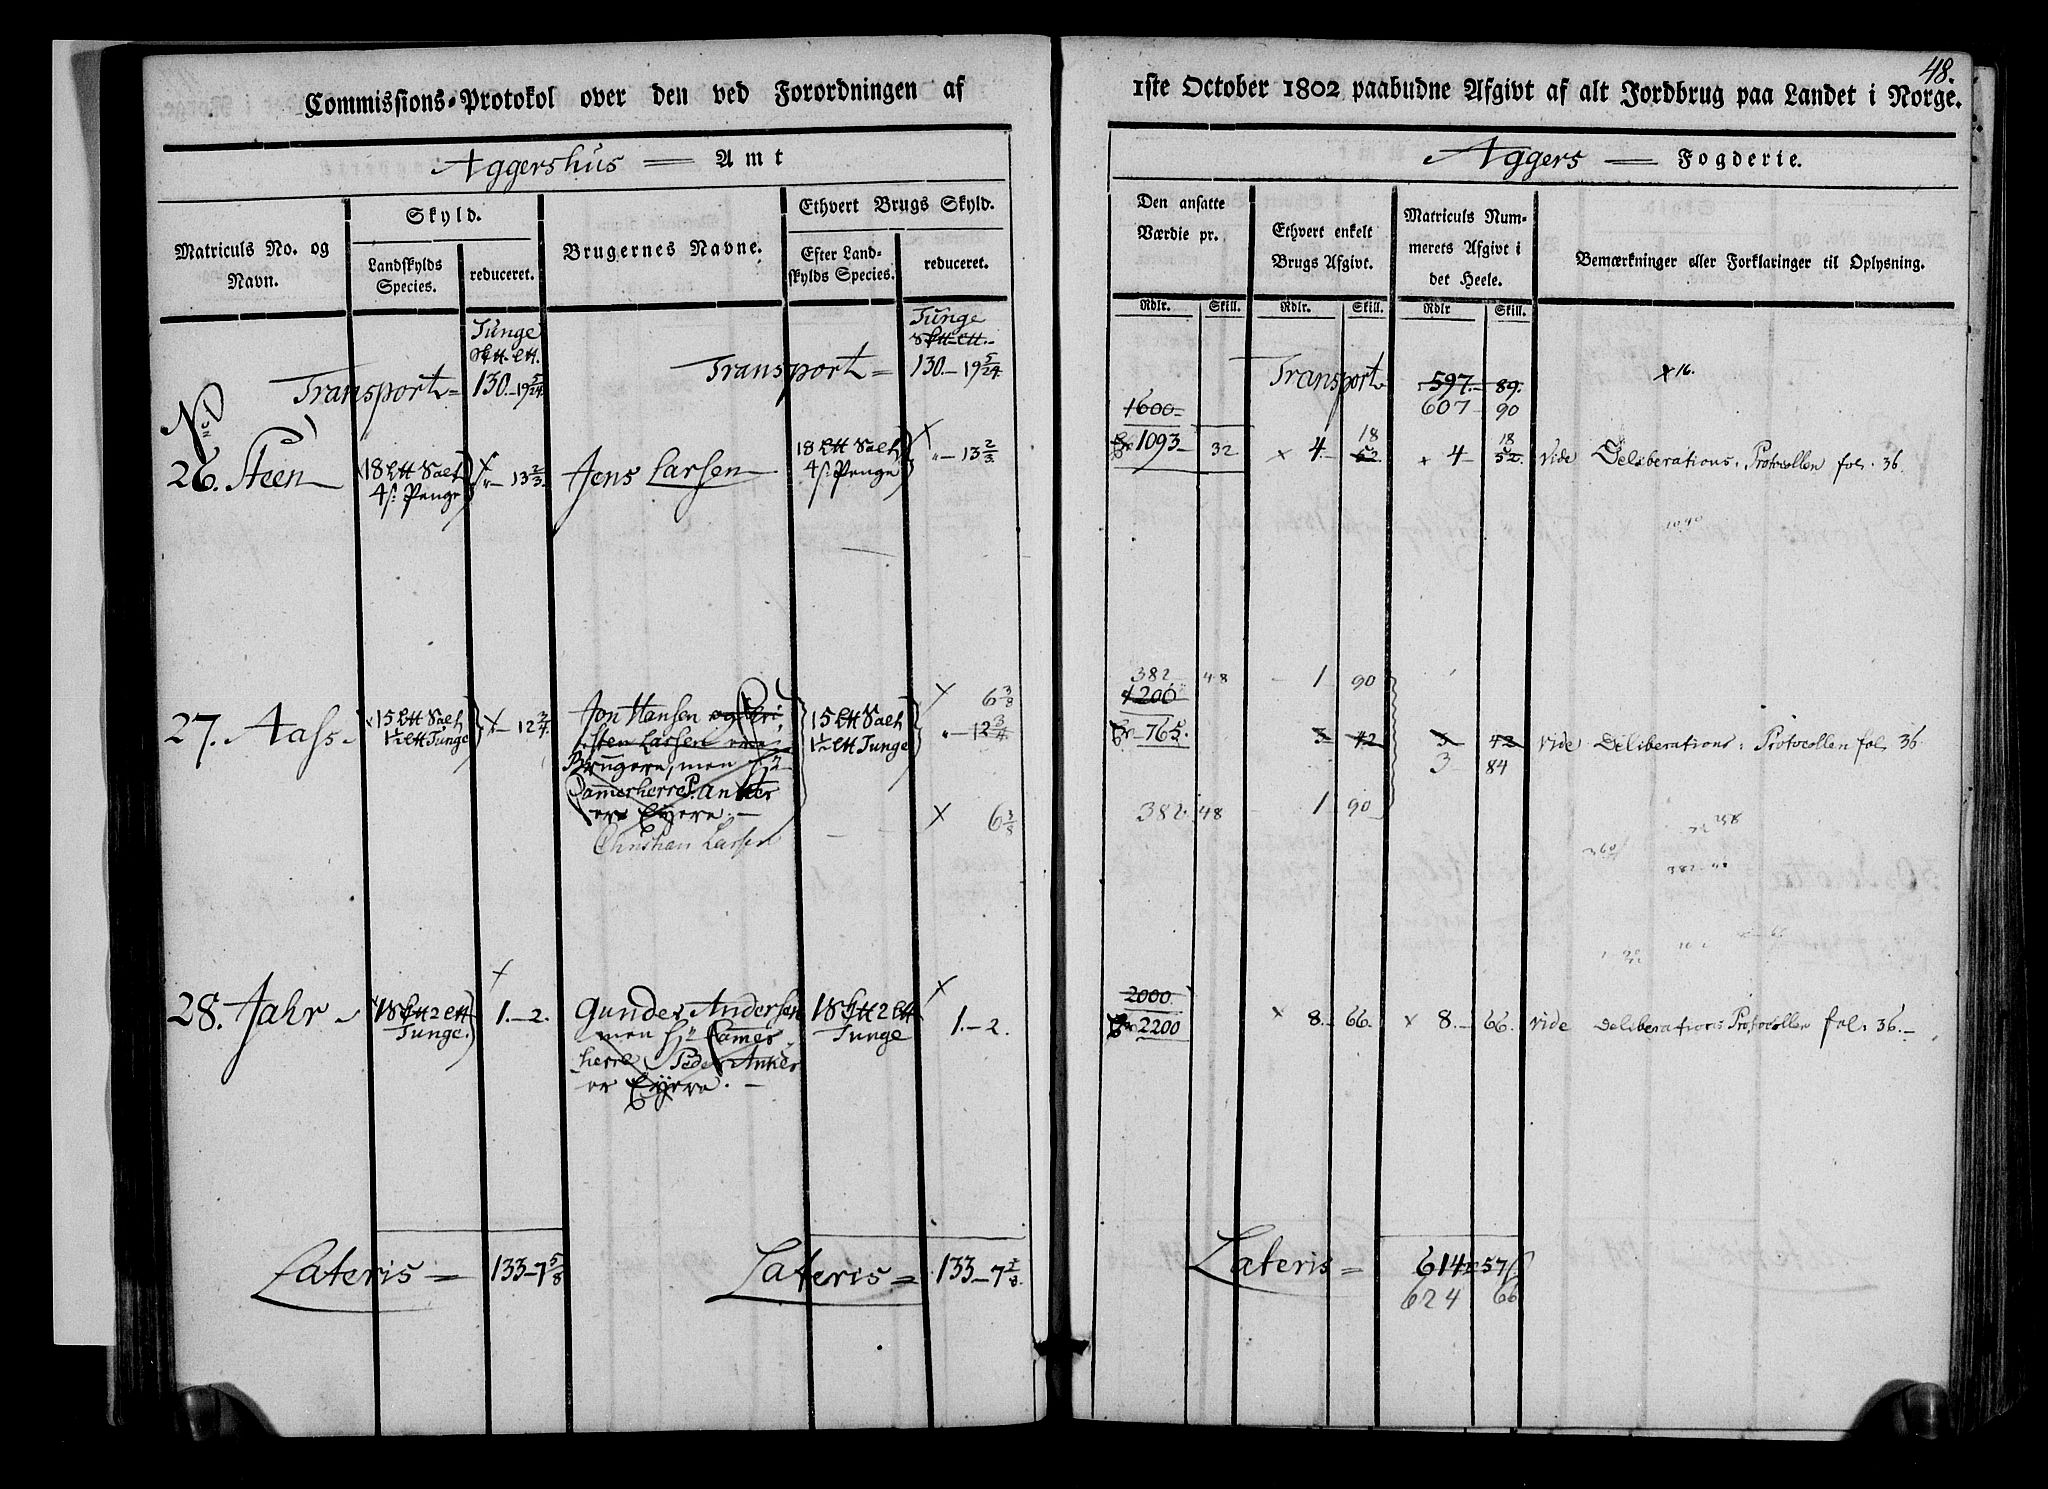 48.
Commissions-Protokol over den ved Forordningen af 1ste October 1802 paabudne Afgivt af alt Jordbrug paa Landet i Norge.
Aggershus Amt
Aggers Fogderie.
Matriculs No. og Navn.
Skyld.
Landskylds Species.
reduceret.
Brugernes Navne.
Ethvert Brugs Skyld.
Efter Landskylds Species.
reduceret.
Den ansatte Værdie pr.
Ethvert enkelt Brugs Afgivt.
Matriculs Nummerets Afgivt i det Heele.
Bemærkninger eller Forklaringer til Oplysning.
Rdlr. Skill. Rdlr. Skill. Rdlr Skill.
Tunge
Tunge
Transport 130.-19 5/24
Transport 130.-19 5/24
Transport 597.-89.
607 90
x 16.
No
1600
26. Steen 18 Ltt Salt
4 s. Penge
13 2/3.
Jens Larsen
18 Ltt Salt
4 s. Penge
13 2/3
1093 32
x 4. 52 18
x 4 52. 18
vide Deliberations Protocollen fol. 36.
382 48
1 90
6 3/8
1200
27. Aass. 15 Ltt Salt
1½ Ltt Tunge
12 3/4
Jon Hansen og Chri
sten Larsen ere
Brugere, men Hr
Camerherre P. Anker
er Eyere.
Christian Larsen
15 Ltt Salt
1½ Ltt Tunge
12 3/4
765.
3 42
3 42
3 84
vide Deliberations Protocollen fol. 36
6 3/8
382 48
1 90
28. Jahr 1 Stt 2 Ltt
Tunge.
1.-2.
Gunder Andersen
men Hr Camer
herre Peder Anker
er Eyere.
1 Stt 2 Ltt
Tunge
1.-2.
2000
2200
x 8. 66.
x 8. 66.
vide Deliberations Protocollen fol: 36.
Lateris 133-7 5/8
Lateris 133-7
Lateris 614 57
624 66